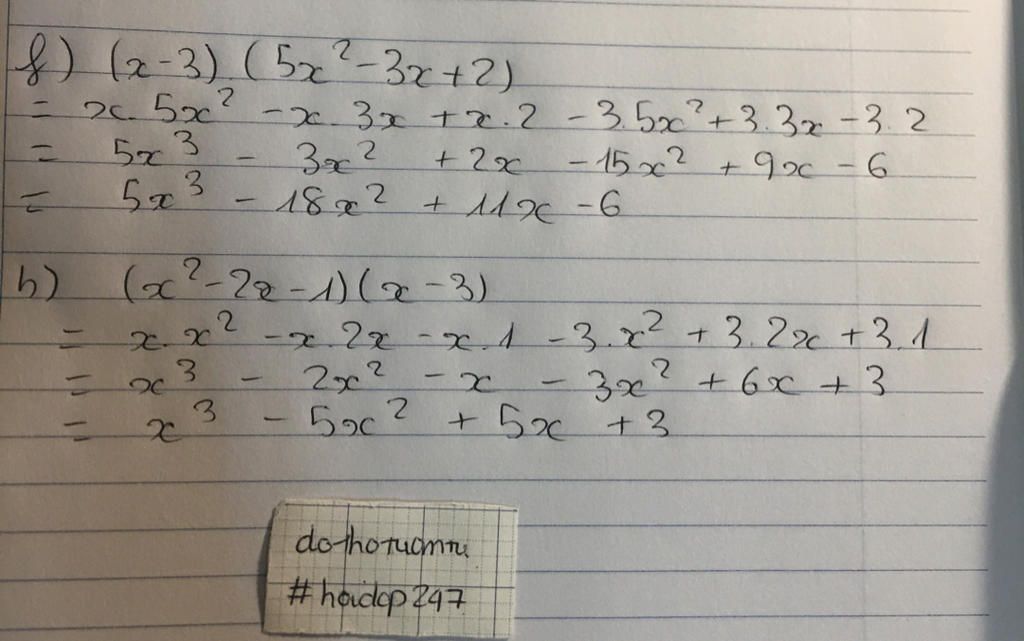 f) (x-3) (5x²-3x+2)
= x.5x² - x.3x + x.2 - 3.5x² + 3.3x - 3.2
= 5x³ - 3x² + 2x - 15x² + 9x - 6
= 5x³ - 18x² + 11x - 6
h) (x²-2x-1)(x-3)
= x.x² - x.2x - x.1 - 3.x² + 3.2x + 3.1
= x³ - 2x² - x - 3x² + 6x + 3
= x³ - 5x² + 5x + 3
#hoidap247